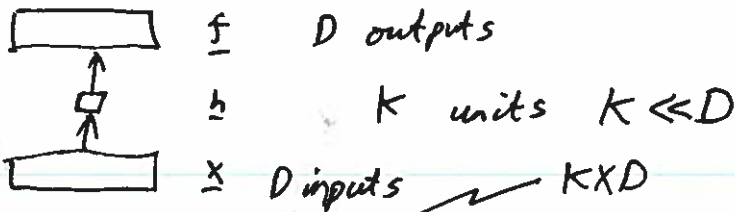 f D outputs
h K units K << D
x D inputs K×D